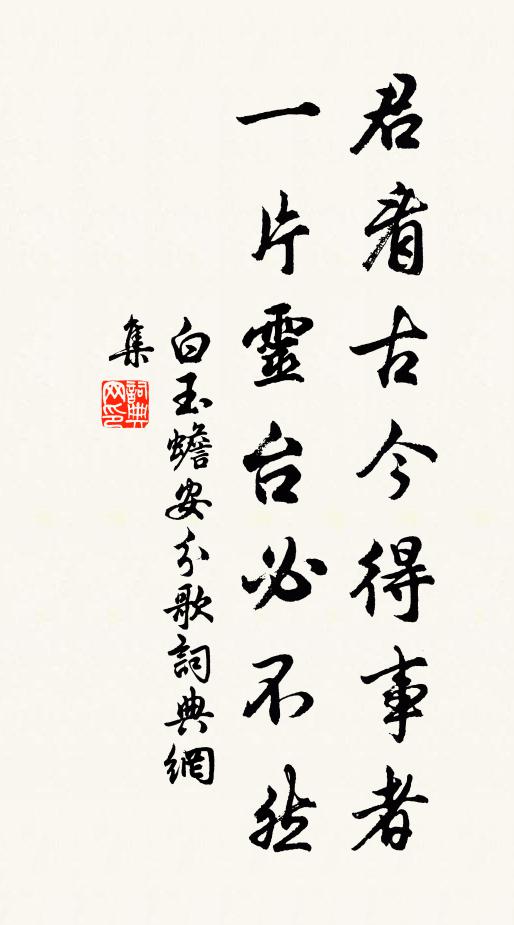 君看古今得事者
一片靈台必不然
白玉蟾安分歌詞典網
集
詞典
网印